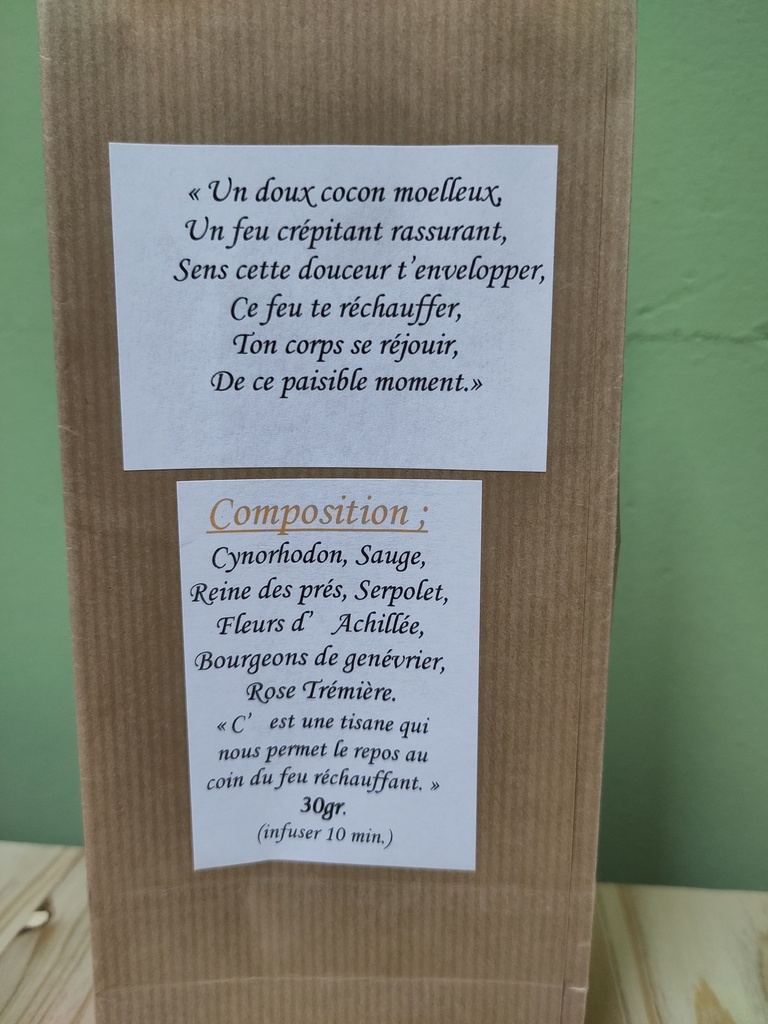 « Un doux cocon moelleux,
Un feu crépitant rassurant,
Sens cette douceur t'envelopper,
Ce feu te réchauffer,
Ton corps se réjouir,
De ce paisible moment.»
Composition ;
Cynorhodon, Sauge,
Reine des prés, Serpolet,
Fleurs d' Achillée,
Bourgeons de genévrier,
Rose Trémière.
« C' est une tisane qui
nous permet le repos au
coin du feu réchauffant. »
30gr.
(infuser 10 min.)